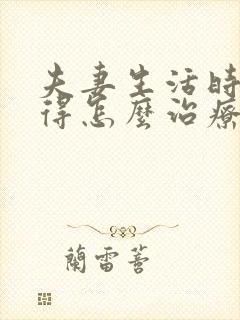 夫妻生活時
得怎麼治療
蘭雷菩